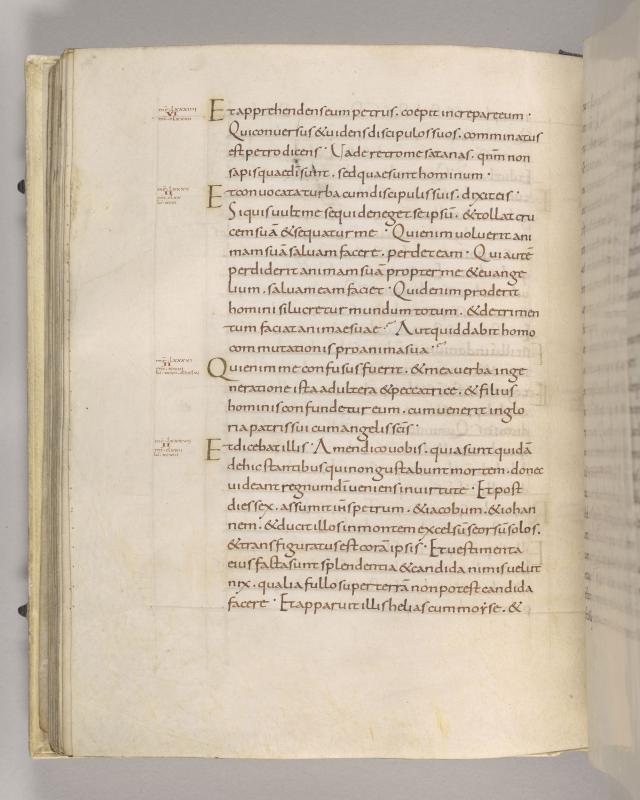 Et apprehendens eum petrus. coepit increpare eum·
Qui conversus & videns discipulos suos. comminatus
est petro dicens· Vade retro me satanas. qnm̄ non
sapis quae dī sunt. sed quae sunt hominum·
Et convocata turba cum discipulis suis. dixit eis·
Si quis vult me sequi deneget se ipsū. & tollat cru
cem suā & sequatur me· Qui enim voluerit ani
mam suā salvam facere. perdet eam· Qui autē
perdiderit animam suā propter me & evange
lium. salvam eam faciet· Quid enim proderit
homini si lucretur mundum totum. & detrimen
tum faciat animae suae· Aut quid dabit homo
commutationis pro anima sua·
Qui enim me confusus fuerit. & mea verba in ge
neratione ista adultera & peccatrice. & filius
hominis confundetur eum. cum venerit in glo
ria patris sui cum angelis scīs·
Et dicebat illis· Amen dico vobis. quia sunt quidā
de hic stantibus qui non gustabunt mortem. donec
videant regnum dī veniens in virtute· Et post
dies sex. assumit iħs petrum. & iacobum. & iohan
nem. & ducit illos in montem excelsū seorsū solos.
& transfiguratus est corā ipsis· Et vestimenta
eius facta sunt splendentia & candida nimis velut
nix. qualia fullo super terrā non potest candida
facere· Et apparuit illis helias cum moyse. &